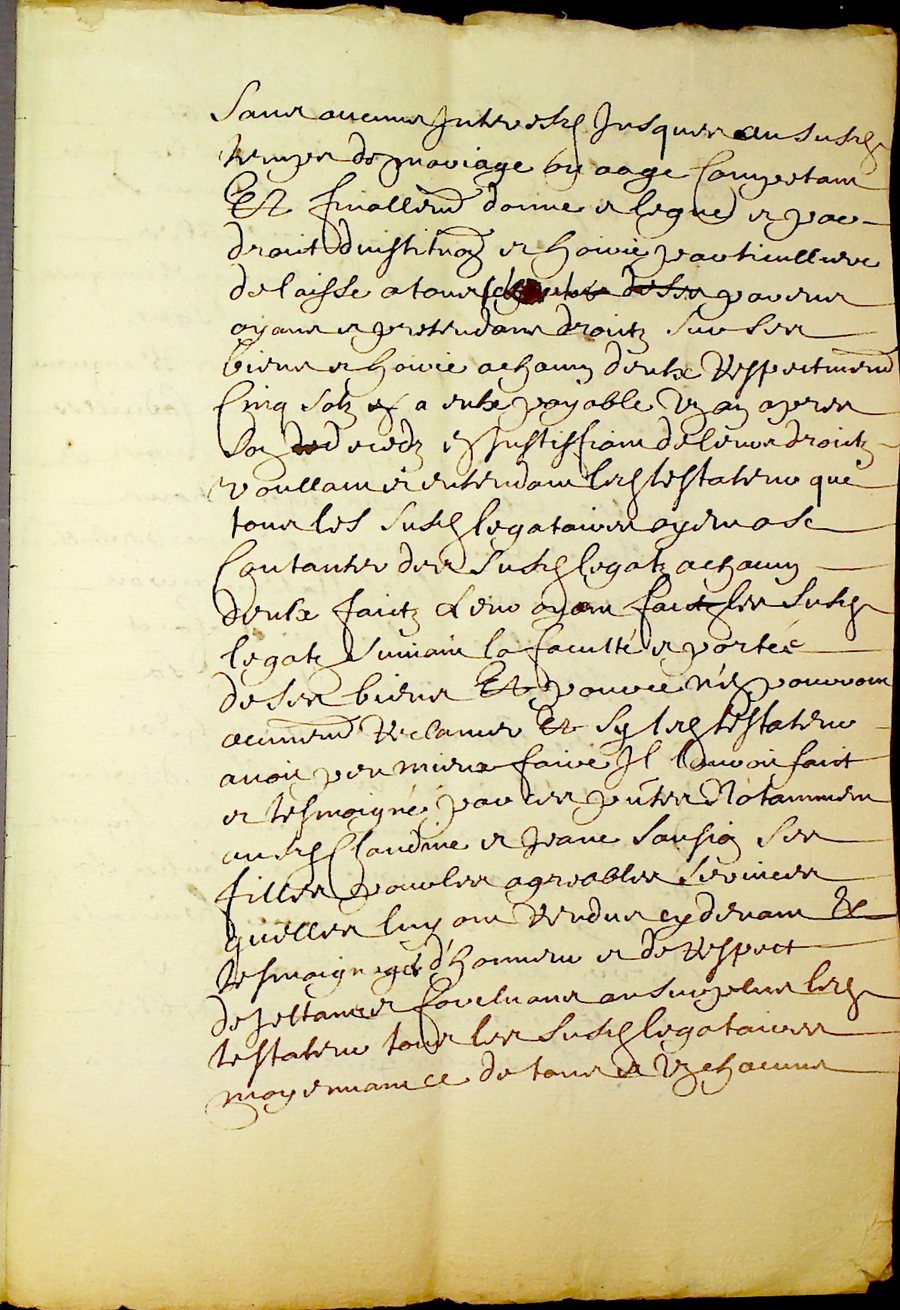 Sans aucuns Interestz Jusques au susd
temps de mariage ou aage Competant
Et finallemt donne et legue et par
droit dinstituon et hoirie particulliere
delaisse a tous ses parens
ayans et pretendans droitz sur ses
biens et hoirie a chacun deulx Respectivemt
Cinq solz a eulx payable Un an apres
son decedz et Justiffiant de leurs droitz
voullant et entendant led testateur que
tous les susd legataires ayent a se
Contanter des susd legatz a chacun
deulx faictz Leur ayant faict les susd
legatz suivant la faculté et portée
de ses biens Et pource n'en pourront
aucunemt Reclamer Et sy led testateur
avoit peu mieux faire Il l'auroit faict
et tesmoigné par ces pntes Notamment
ausd Claudine et Jeane ses
filles pour les agreables services
quelles luy ont Rendus cy devant Et
tesmoignages d'honneur et de Respect
desquels led
testateur tous les susd legataires
moyennant ce de tous et Un chacuns